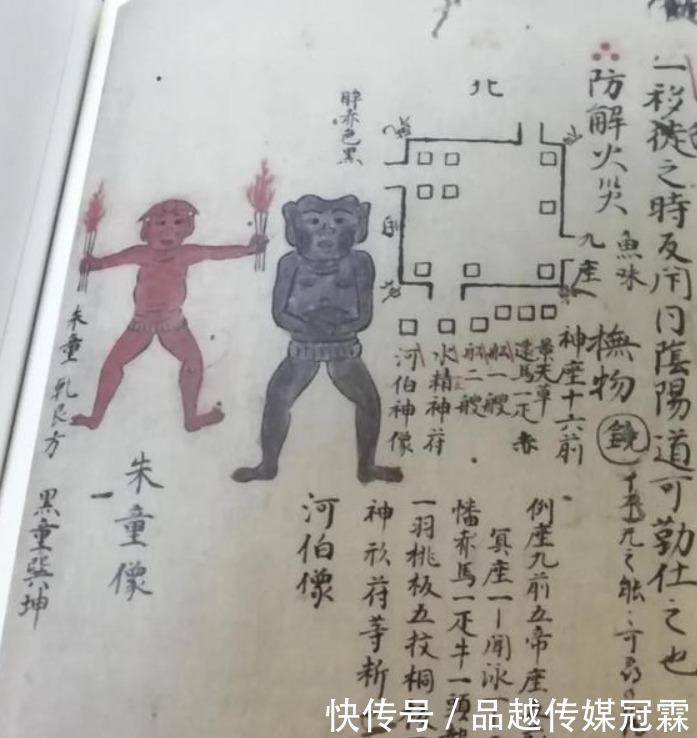 一移徙之時反閇日陰陽道可勤仕之也
防解火災
魚味
撫物
鏡
北
九座
神座十六前
景天草
造馬一疋赤
船一艘
船二艘
水精神符
河伯神像
倒座九前五帝座
冥座一
幡赤馬一疋牛一頭
一羽桃板五枚桐
神形符等析
河伯像
朱童像
朱童乾艮方
黒童巽坤
快传号/品越传媒冠霖